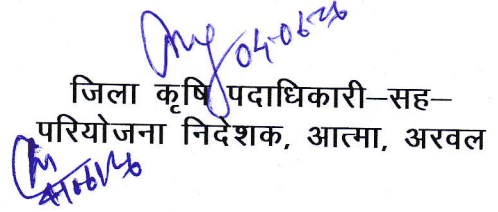 04-06-26
जिला कृषि पदाधिकारी–सह–
परियोजना निदेशक, आत्मा, अरवल